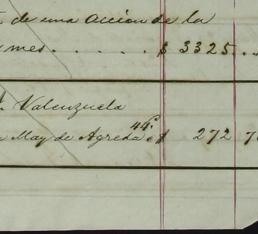 de una accion de la
mes . . . . . . . $ 3325 . .
Valenzuela
May de Agreda 44. $ 272 7